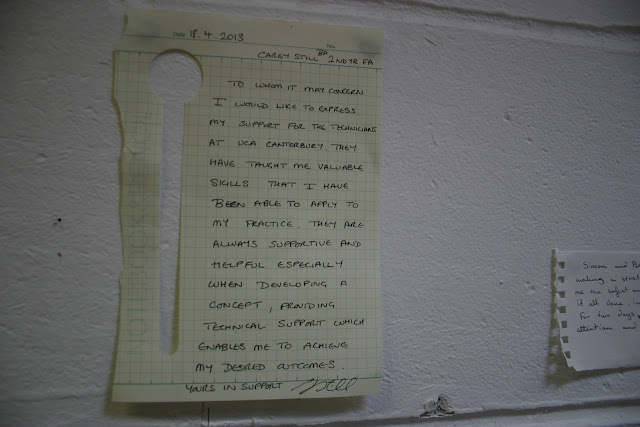 DATE 18.4.2013 No.
CAREY STILL BA 2NDYR FA
TO WHOM IT MAY CONCERN
I WOULD LIKE TO EXPRESS
MY SUPPORT FOR THE TECHNICIANS
AT UCA CANTERBURY. THEY
HAVE TAUGHT ME VALUABLE
SKILLS THAT I HAVE
BEEN ABLE TO APPLY TO
MY PRACTICE. THEY ARE
ALWAYS SUPPORTIVE AND
HELPFUL ESPECIALLY
WHEN DEVELOPING A
CONCEPT, PROVIDING
TECHNICAL SUPPORT WHICH
ENABLES ME TO ACHIEVE
MY DESIRED OUTCOMES.
YOURS IN SUPPORT
Simon and
making a
me the safest
if all done.
For two days
attention and